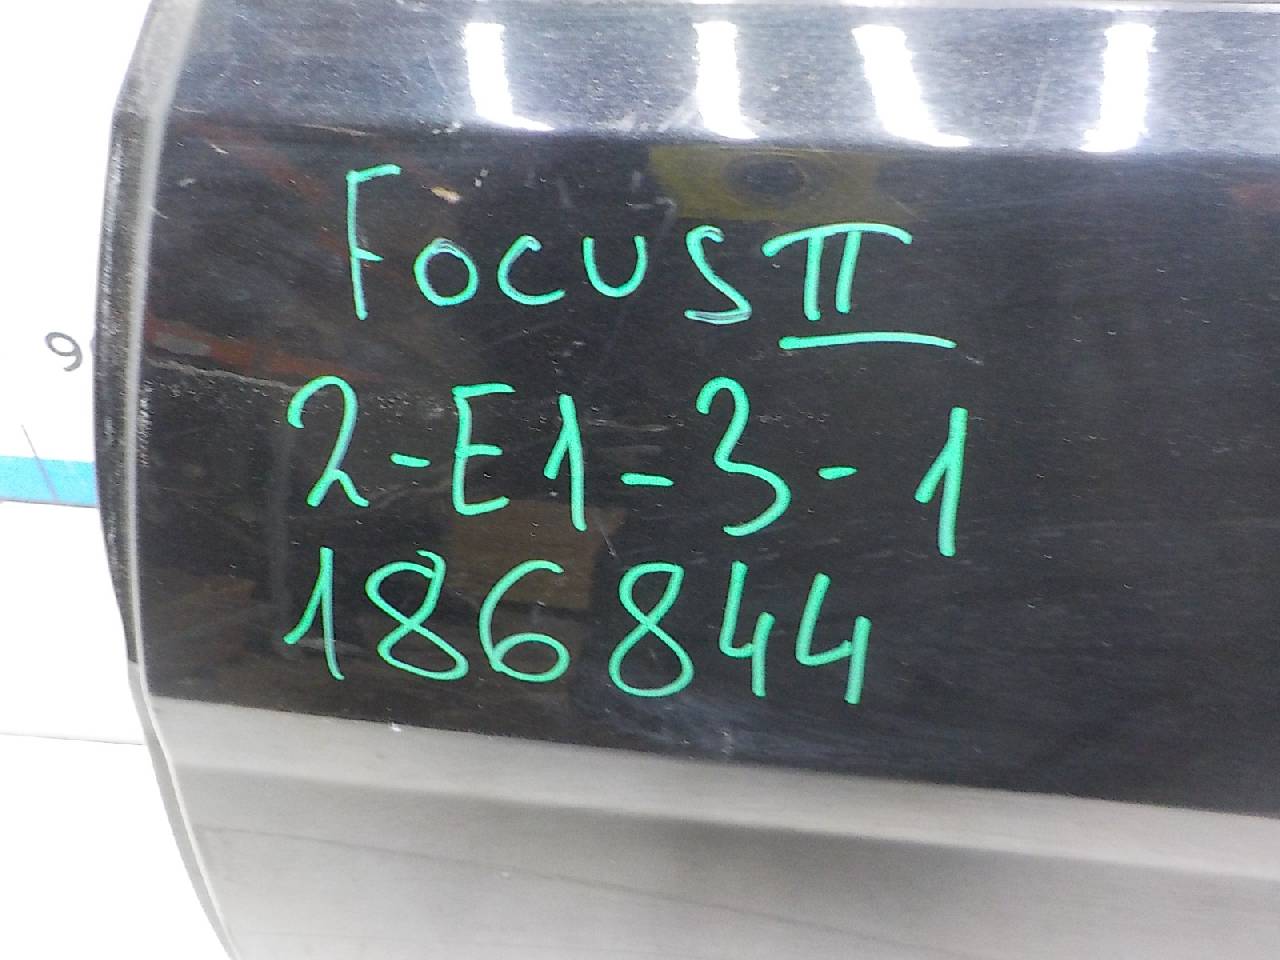 FOCUS II
2-E1-3-1
186844